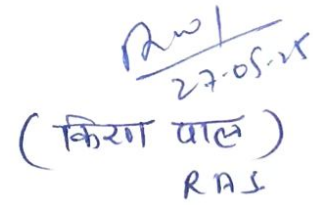 27-05-25
(किरण पाल)
RAS